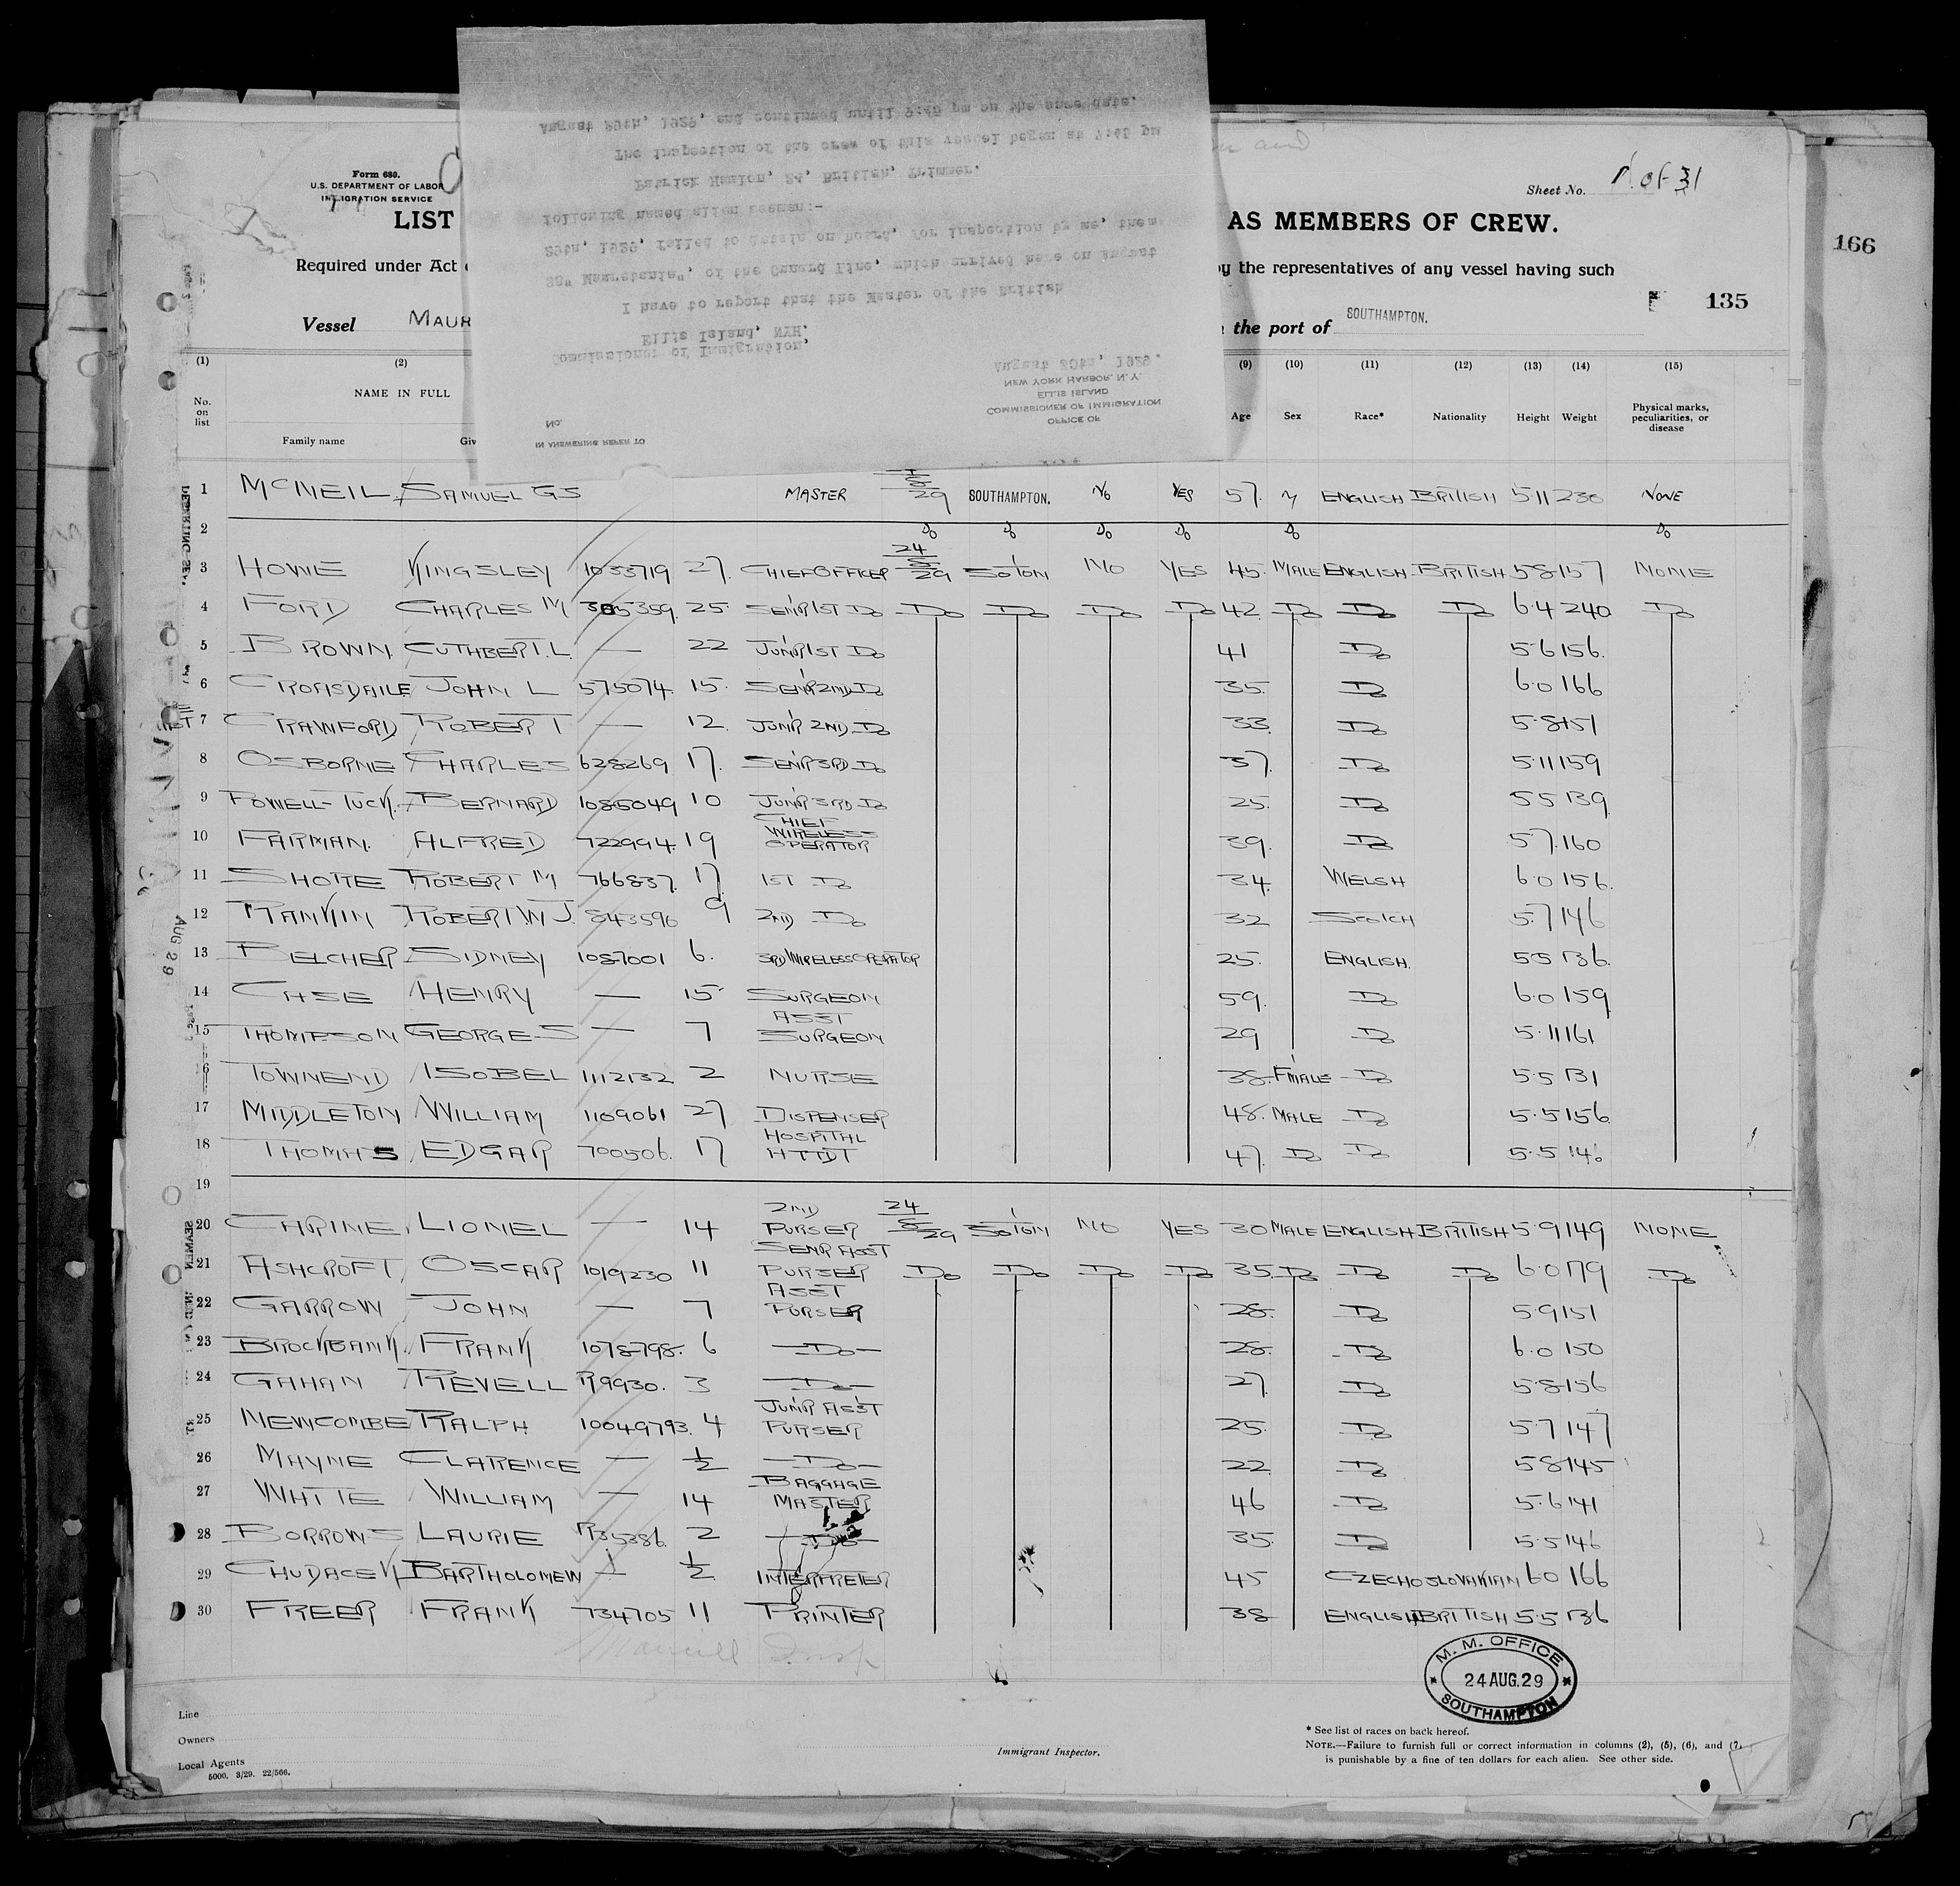 August 29th, 1929, and continued until 9:45 pm on the same date.
The inspection of the crew of this vessel began at 7:45 pm
Patrick Hanlon, 24, British, Trimmer.
following named alien seaman:-
29th, 1929, failed to detain on board, for inspection by me, the
SS" Mauretania", of the Cunard Line, which arrived here on August
I have to report that the Master of the British
Ellis Island, NYH.
Commissioner of Immigration,
August 30th, 1929.
NEW YORK HARBOR, N. Y.
ELLIS ISLAND
COMMISSIONER OF IMMIGRATION
OFFICE OF
No.
IN ANSWERING REFER TO
Form 680.
U.S. DEPARTMENT OF LABOR
IMMIGRATION SERVICE
Sheet No. 1 of 31
LIST AS MEMBERS OF CREW.
166
Required under Act by the representatives of any vessel having such
135
Vessel MAUR the port of SOUTHAMPTON.
(1) (2) (9) (10) (11) (12) (13) (14) (15)
No. on list NAME IN FULL Age Sex Race* Nationality Height Weight Physical marks, peculiarities, or disease
Family name Giv
1 McNEIL SAMUEL G S MASTER 29 SOUTHAMPTON. No YES 57. M ENGLISH BRITISH 5·11 230 NONE
2 Do Do Do Do Do Do
3 HOWE KINGSLEY 1033719 27. CHIEF OFFICER 24/8/29 SO'TON NO YES 45. MALE ENGLISH BRITISH 5·8 157 NONE
4 FORD CHARLES M 305359. 25 SENR 1ST Do Do Do Do Do 42. Do Do Do 6·4 240 Do
5 BROWN. CUTHBERT. L. — 22 JUNR 1ST Do 41 Do 5·6 156.
6 CROASDAILE JOHN L 575074. 15. SENR 2ND Do 35. Do 6·0 166
7 CRAWFORD ROBERT — 12 JUNR 2ND Do 33. Do 5·8 151
8 OSBORNE CHARLES 628269 17. SENR 3RD Do 37. Do 5·11 159
9 POWELL-TUCK. BERNARD 1085049 10 JUNR 3RD Do 25. Do 5·5 139
10 FARMAN. ALFRED 722994. 19 CHIEF WIRELESS OPERATOR 39. Do 5·7. 160
11 SHORE ROBERT M 766837. 17. 1ST Do 34. WELSH 6·0 156.
12 RANKIN ROBERT. W. J. 843596 9 2ND Do 32 SCOTCH 5·7 146
13 BELCHER SIDNEY 1087001 6. 3RD WIRELESS OPERATOR 25. ENGLISH. 5·5 136.
14 CASE HENRY — 15 SURGEON 59. Do 6·0 159
15 THOMPSON GEORGE S — 7 ASST SURGEON 29 Do 5·11 161
16 TOWNEND ISOBEL 1112132 2 NURSE 38. F'MALE Do 5·5 131
17 MIDDLETON WILLIAM 1109061 27 DISPENSER 48. MALE Do 5·5 156
18 THOMAS EDGAR 700506. 17 HOSPITAL ATTDT 47. Do Do 5·5 146
19
20 CARINE, LIONEL — 14 2ND PURSER 24/8/29 SO'TON NO YES 30 MALE ENGLISH BRITISH 5·9 149 NONE
21 ASHCROFT, OSCAR 1019230 11 SENR ASST PURSER Do Do Do Do 35. Do Do Do 6·0 179 Do
22 GARROW JOHN — 7 ASST PURSER 28. Do 5·9 151
23 BROCKBANK FRANK 1078798. 6 Do 28. Do 6·0 150
24 GAHAN REVELL R9930. 3 Do 27. Do 5·8 156
25 NEWCOMBE RALPH 10049793. 4 JUNR ASST PURSER 25. Do 5·7 147
26 MAYNE CLARENCE — ½ Do 22 Do 5·8 145
27 WHITE WILLIAM — 14 BAGGAGE MASTER 46 Do 5·6 141
28 BORROWS LAURIE R35386. 2 Do 35. Do 5·5 146
29 CHUDACEK BARTHOLOMEW — ½ INTERPRETER 45 CZECHOSLOVAKIAN 6·0 166
30 FREER FRANK 734705 11 PRINTER 38 ENGLISH BRITISH 5·5 136
M. M. OFFICE
24 AUG. 29
SOUTHAMPTON
AUG 29
Line
Owners
Local Agents
5000. 3/29. 22/566.
Immigrant Inspector.
* See list of races on back hereof.
NOTE.—Failure to furnish full or correct information in columns (2), (5), (6), and (7)
is punishable by a fine of ten dollars for each alien. See other side.